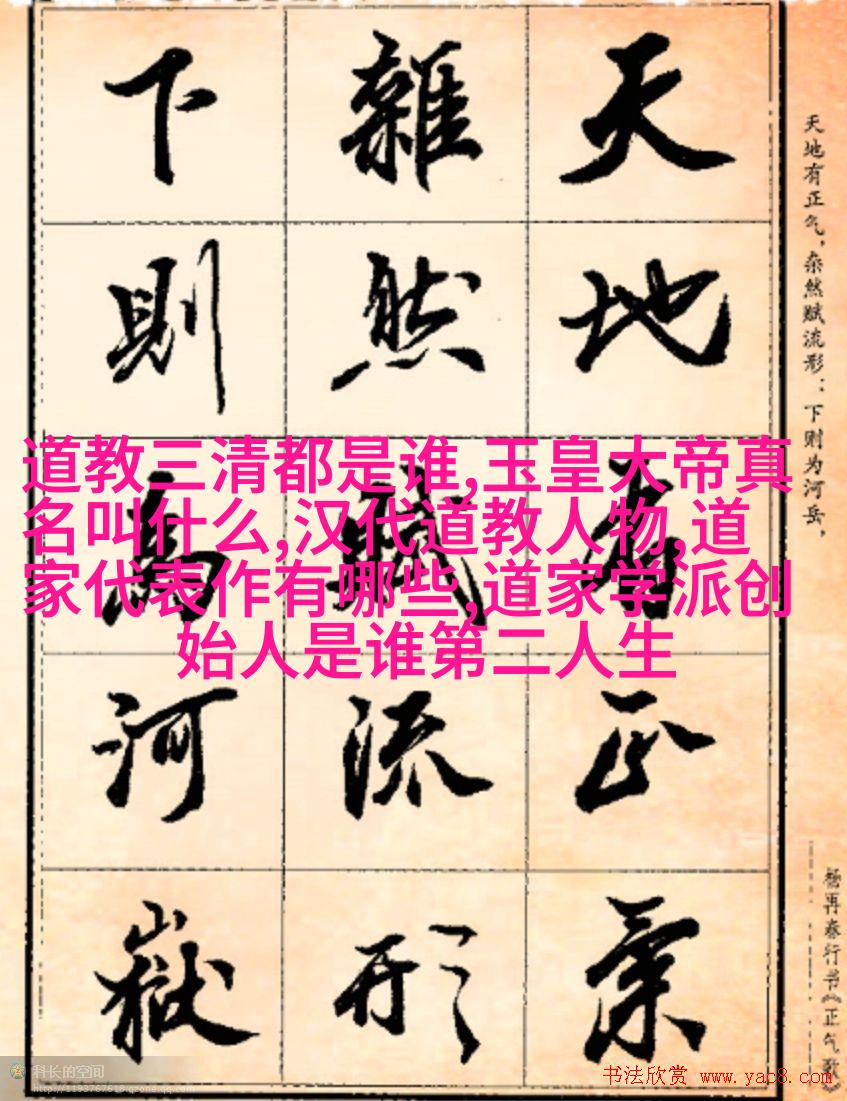 天地有正氣
雜然賦流形
下則為河嶽
天地有正气，杂然赋流形：下则为河岳，
杨再春行书《正气歌》
道教三清都是谁,玉皇大帝真
名叫什么,汉代道教人物,道
家代表作有哪些,道家学派创
始人是谁第二人生
科长的空间
http://1193767618.qzone.qq.com
书法欣赏 www.yac8.com